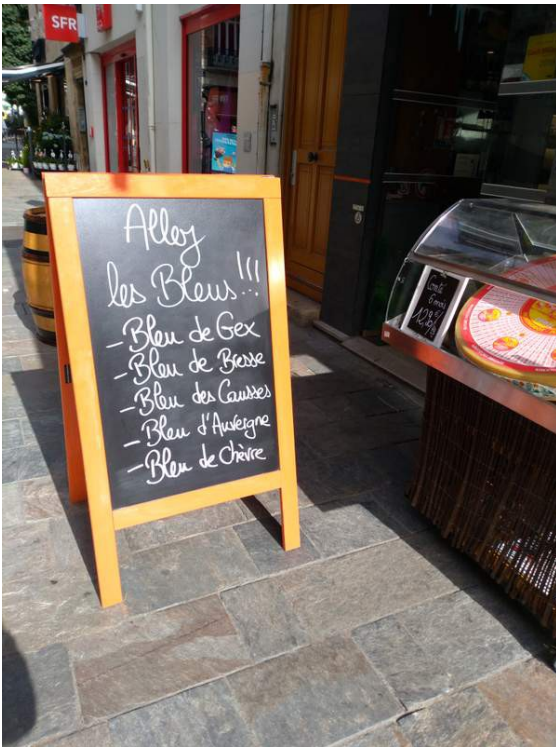 SFR
Allez
les Bleus!!!
- Bleu de Gex
- Bleu de Bresse
- Bleu des Causses
- Bleu d'Auvergne
- Bleu de Chèvre
Comté
6 mois